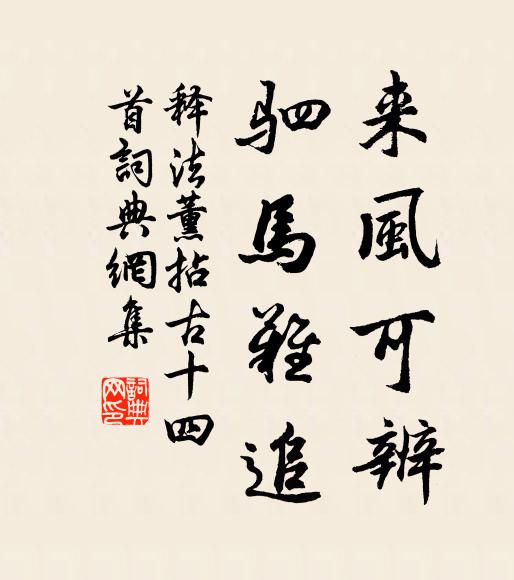 来風可辨
驷馬難追
释法薰拈古十四
首詞典網集
詞典网印